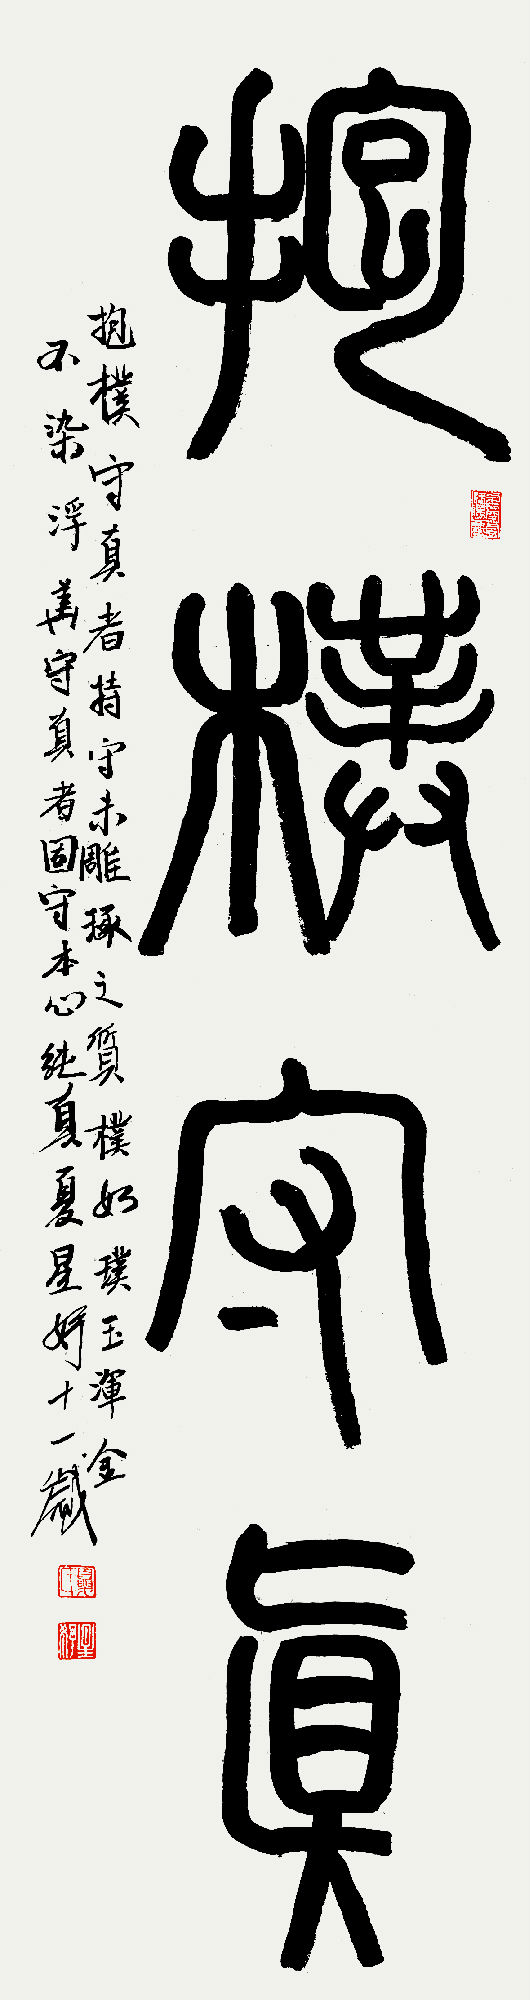 抱樸守真
抱樸守真者持守未雕琢之質樸如璞玉渾金
不染浮華守真者固守本心純真夏星妤十一歲